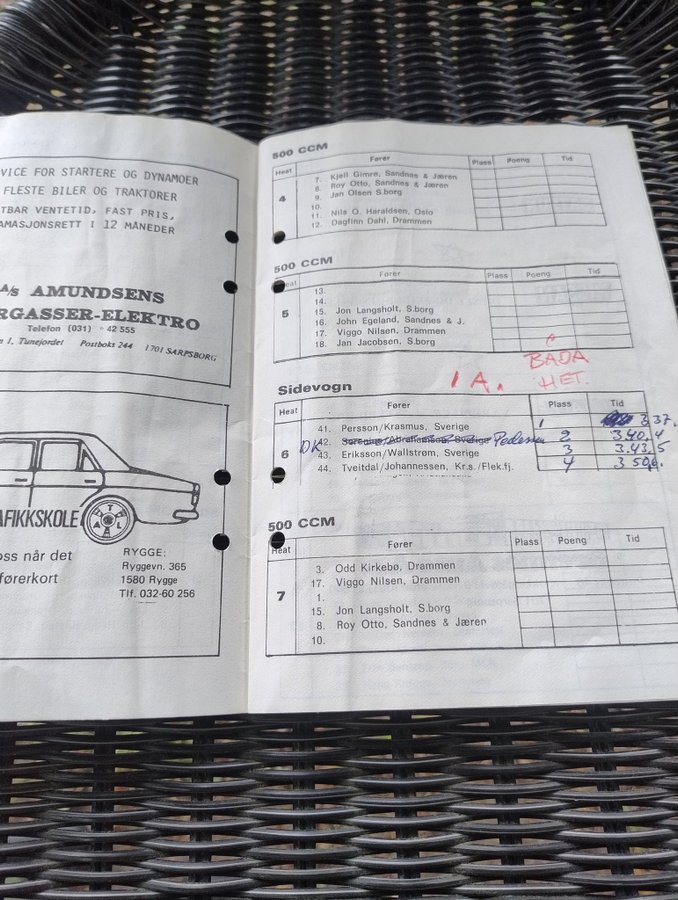 VICE FOR STARTERE OG DYNAMOER
FLESTE BILER OG TRAKTORER
TBAR VENTETID, FAST PRIS,
AMASJONSRETT I 12 MÅNEDER
A/S AMUNDSENS
RGASSER-ELEKTRO
Telefon (031) - 42 555
n 1, Tunejordet Postboks 244 1701 SARPSBORG
TAL
AFIKKSKOLE
oss når det
førerkort
RYGGE:
Ryggevn. 365
1580 Rygge
Tlf. 032-60 256
500 CCM
Heat Fører Plass Poeng Tid
4
7. Kjell Gimre, Sandnes & Jæren
8. Roy Otto, Sandnes & Jæren
9. Jan Olsen S.borg
10.
11. Nils O. Haraldsen, Oslo
12. Dagfinn Dahl, Drammen
500 CCM
Heat Fører Plass Poeng Tid
5
13.
14.
15. Jon Langsholt, S.borg
16. John Egeland, Sandnes & J.
17. Viggo Nilsen, Drammen
18. Jan Jacobsen, S.borg
1 A. BADA
HET.
Sidevogn
Heat Fører Plass Tid
6
41. Persson/Krasmus, Sverige 1 3.37.
DK 42. Pedersen 2 3.40.4
43. Eriksson/Wallstrøm, Sverige 3 3.43.5
44. Tveitdal/Johannessen, Kr.s./Flek.fj. 4
500 CCM
Heat Fører Plass Poeng Tid
7
3. Odd Kirkebø, Drammen
17. Viggo Nilsen, Drammen
1.
15. Jon Langsholt, S.borg
8. Roy Otto, Sandnes & Jæren
10.